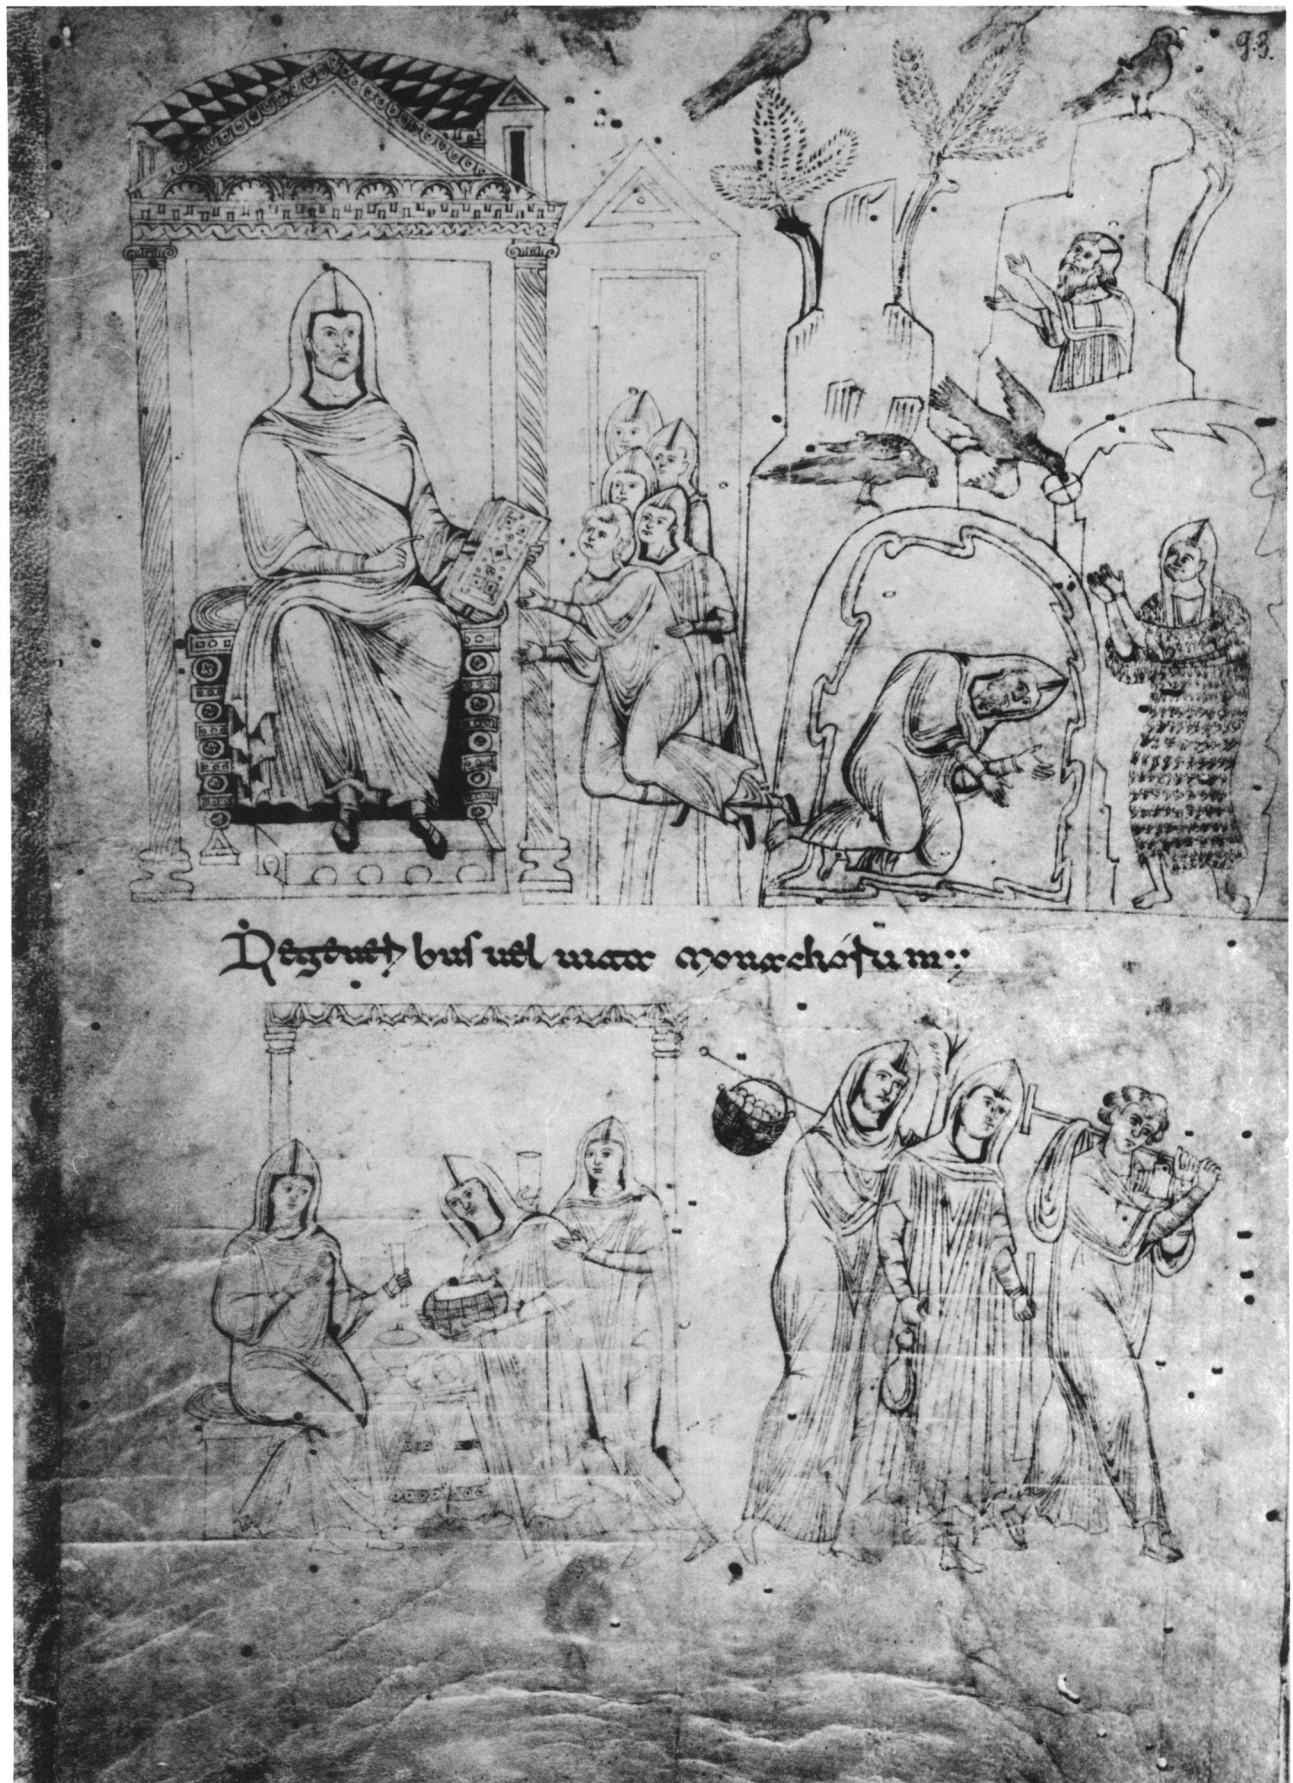 93
De generi bus uel uita monachorum